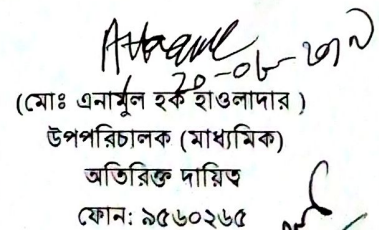 ২০-০৮-২০১২
(মোঃ এনামুল হক হাওলাদার )
উপপরিচালক (মাধ্যমিক)
অতিরিক্ত দায়িত্ব
ফোন: ৯৫৬০২৬৫